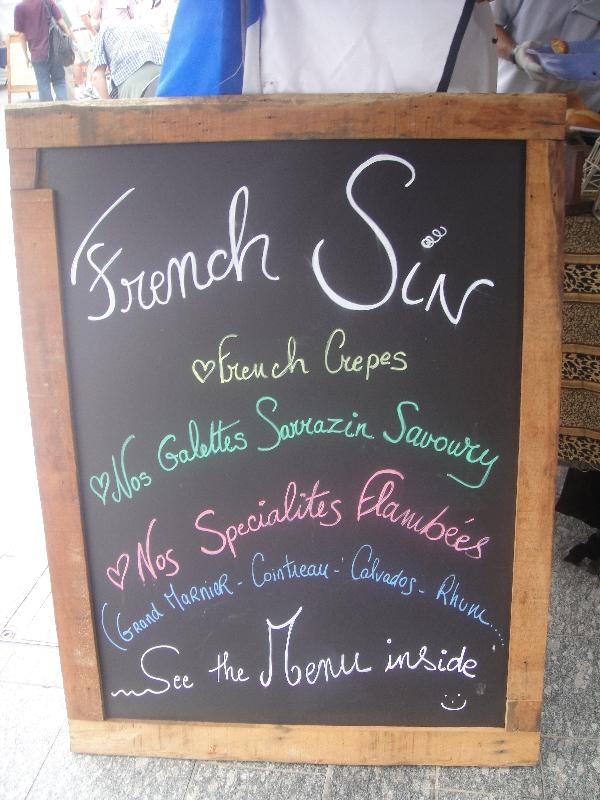 French Sin
♡French Crepes
♡Nos Galettes Sarrazin Savoury
♡Nos Specialites Flambées
(Grand Marnier - Cointreau - Calvados - Rhum.....
See the Menu inside